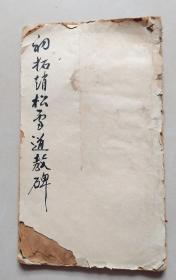 初拓趙松雪道教碑